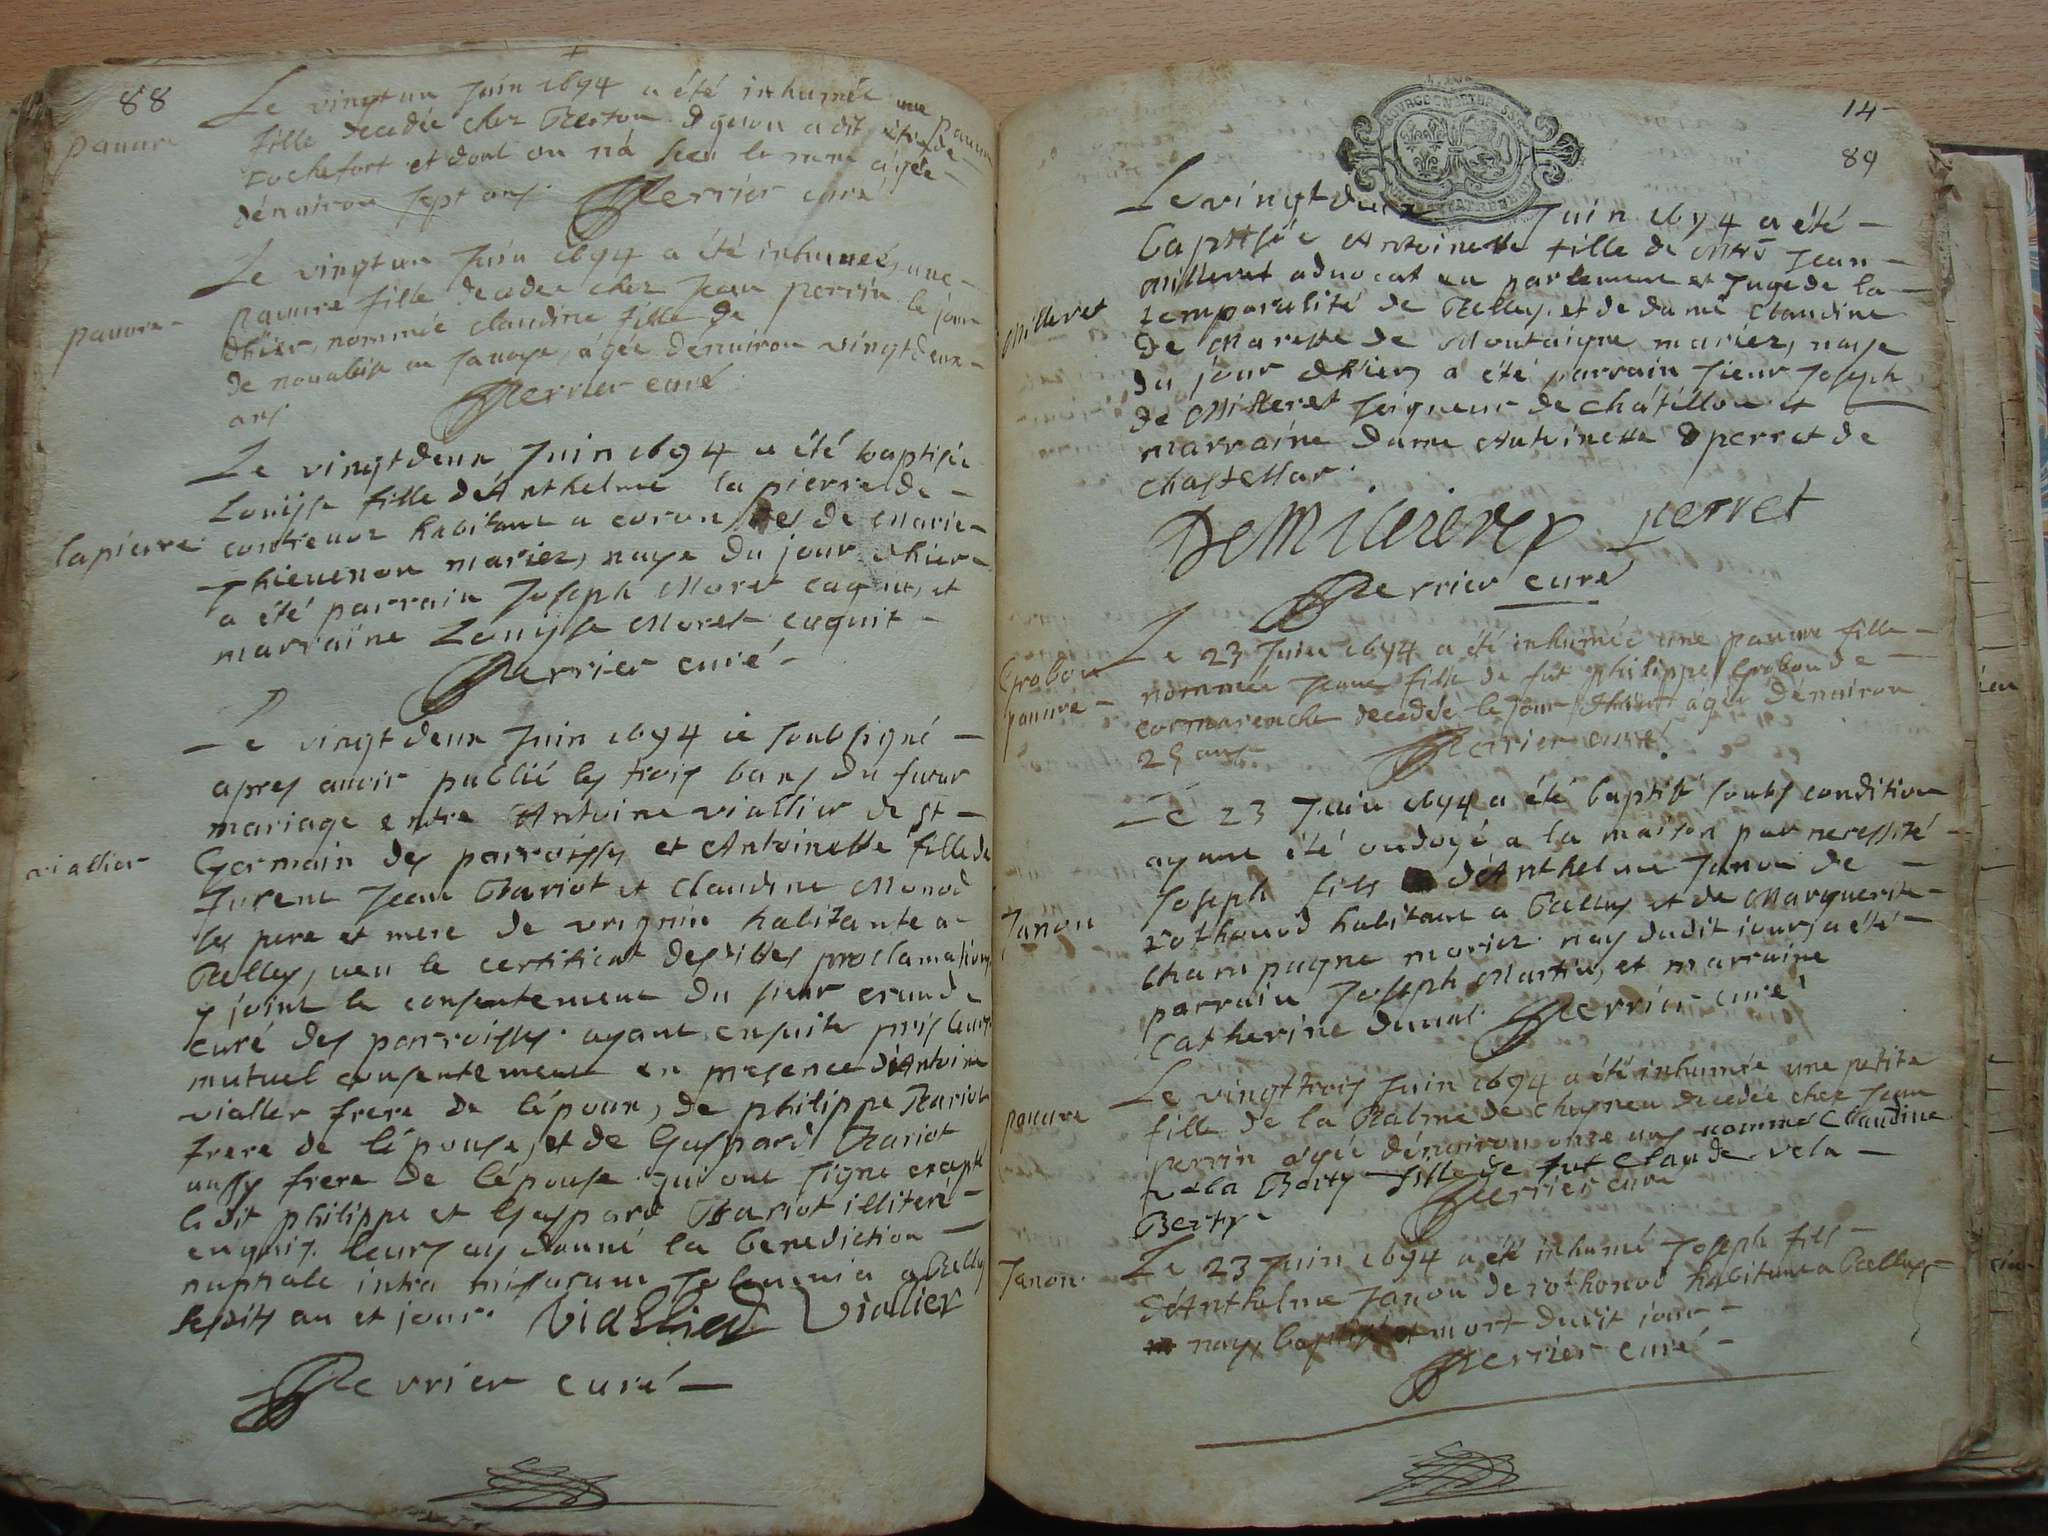 88
pauvre
Le vingt un Juin 1694 a été inhumée une pauvre
fille decedée chez Berton qu'on a dit être de
rochefort et dont on n'a sceu le nom âgée
dénviron sept ans. Perrier curé
pauvre
Le vingt un Juin 1694 a été inhumée, une
pauvre fille decedee chez Jean perrin le jour
dhier, nommée claudine fille de
de novaleise en savoye, âgée dénviron vingt deux
ans Perrier curé
lapierre
Le vingt deux Juin 1694 a été baptisée
Louyse fille d'Anthelme la pierre de
contrevoz habitant a coron et de Marie
Thievenon mariez, naye du jour dhier
a été parrain Joseph Moret caquit, et
marraine Louysse Moret caquit
Perrier curé
viallier
Le vingt deux Juin 1694 ie soubsigné
apres avoir publié les trois bans du futur
mariage entre Antoine viallier de St
Germain des parroisses et Antoinette fille de
furent Jean Bariot et Claudine Monod
les pere et mere de vrignin habitante a
Belley, veu le certificat desdittes proclamations
y joint le consentement du sieur
curé des parroisses. ayant ensuite pris leurs
mutuel consentement en presence d'Antoine
viallier frere de l'époux, de philippe Bariot
frere de l'épouse, et de Gaspard Bariot
aussy frere de l'épouse qui ont signé excepté
ledit philippe et Gaspard Bariot illiteré
enquis. leurs ay donné la benediction
nuptiale intra missarum solemnia a Belley
lesdits an et jour. Viallier Viallier
Perrier curé
14
89
Milleret
Le vingt deux Juin 1694 a été
baptisée Antoinette fille de Mtre Jean
Milleret advocat en parlement et Juge de la
temporalité de Belley, et de dame Claudine
de Mareste de Montaigne mariez, naye
du jour dhier, a été parrain sieur Joseph
de Milleret seigneur de châtillon et
marraine dame Antoinette perret de
chastellar.
perret
Perrier curé
Grobon
pauvre
Le 23 Juin 1694 a été inhumée une pauvre fille
nommée Jeanne fille de fut philippe Grobon de
cormarenche decedée le jour dhier âgée dénviron
25 ans. Perrier curé
Janon
Le 23 Juin 1694 a été baptisé soubs condition
ayant été ondoyé a la maison par necessité
Joseph fils d'Anthelme Janon de
rothonod habitant a Belley et de Marguerite
champagne mariez. nay dudit jour, a été
parrain Joseph Martin, et marraine
Catherine duval. Perrier curé
pauvre
Le vingt trois Juin 1694 a été inhumée une petite
fille de la Balme de cheyneu decedée chez Jean
perrin âgée dénviron onze ans nommée Claudine
vela Berty fille de fut Claude vela
Berty. Perrier curé
Janon
Le 23 Juin 1694 a été inhumé Joseph fils
d'Anthelme Janon de rothonod habitant a Belley
nay, baptisé et mort dudit jour
Perrier curé